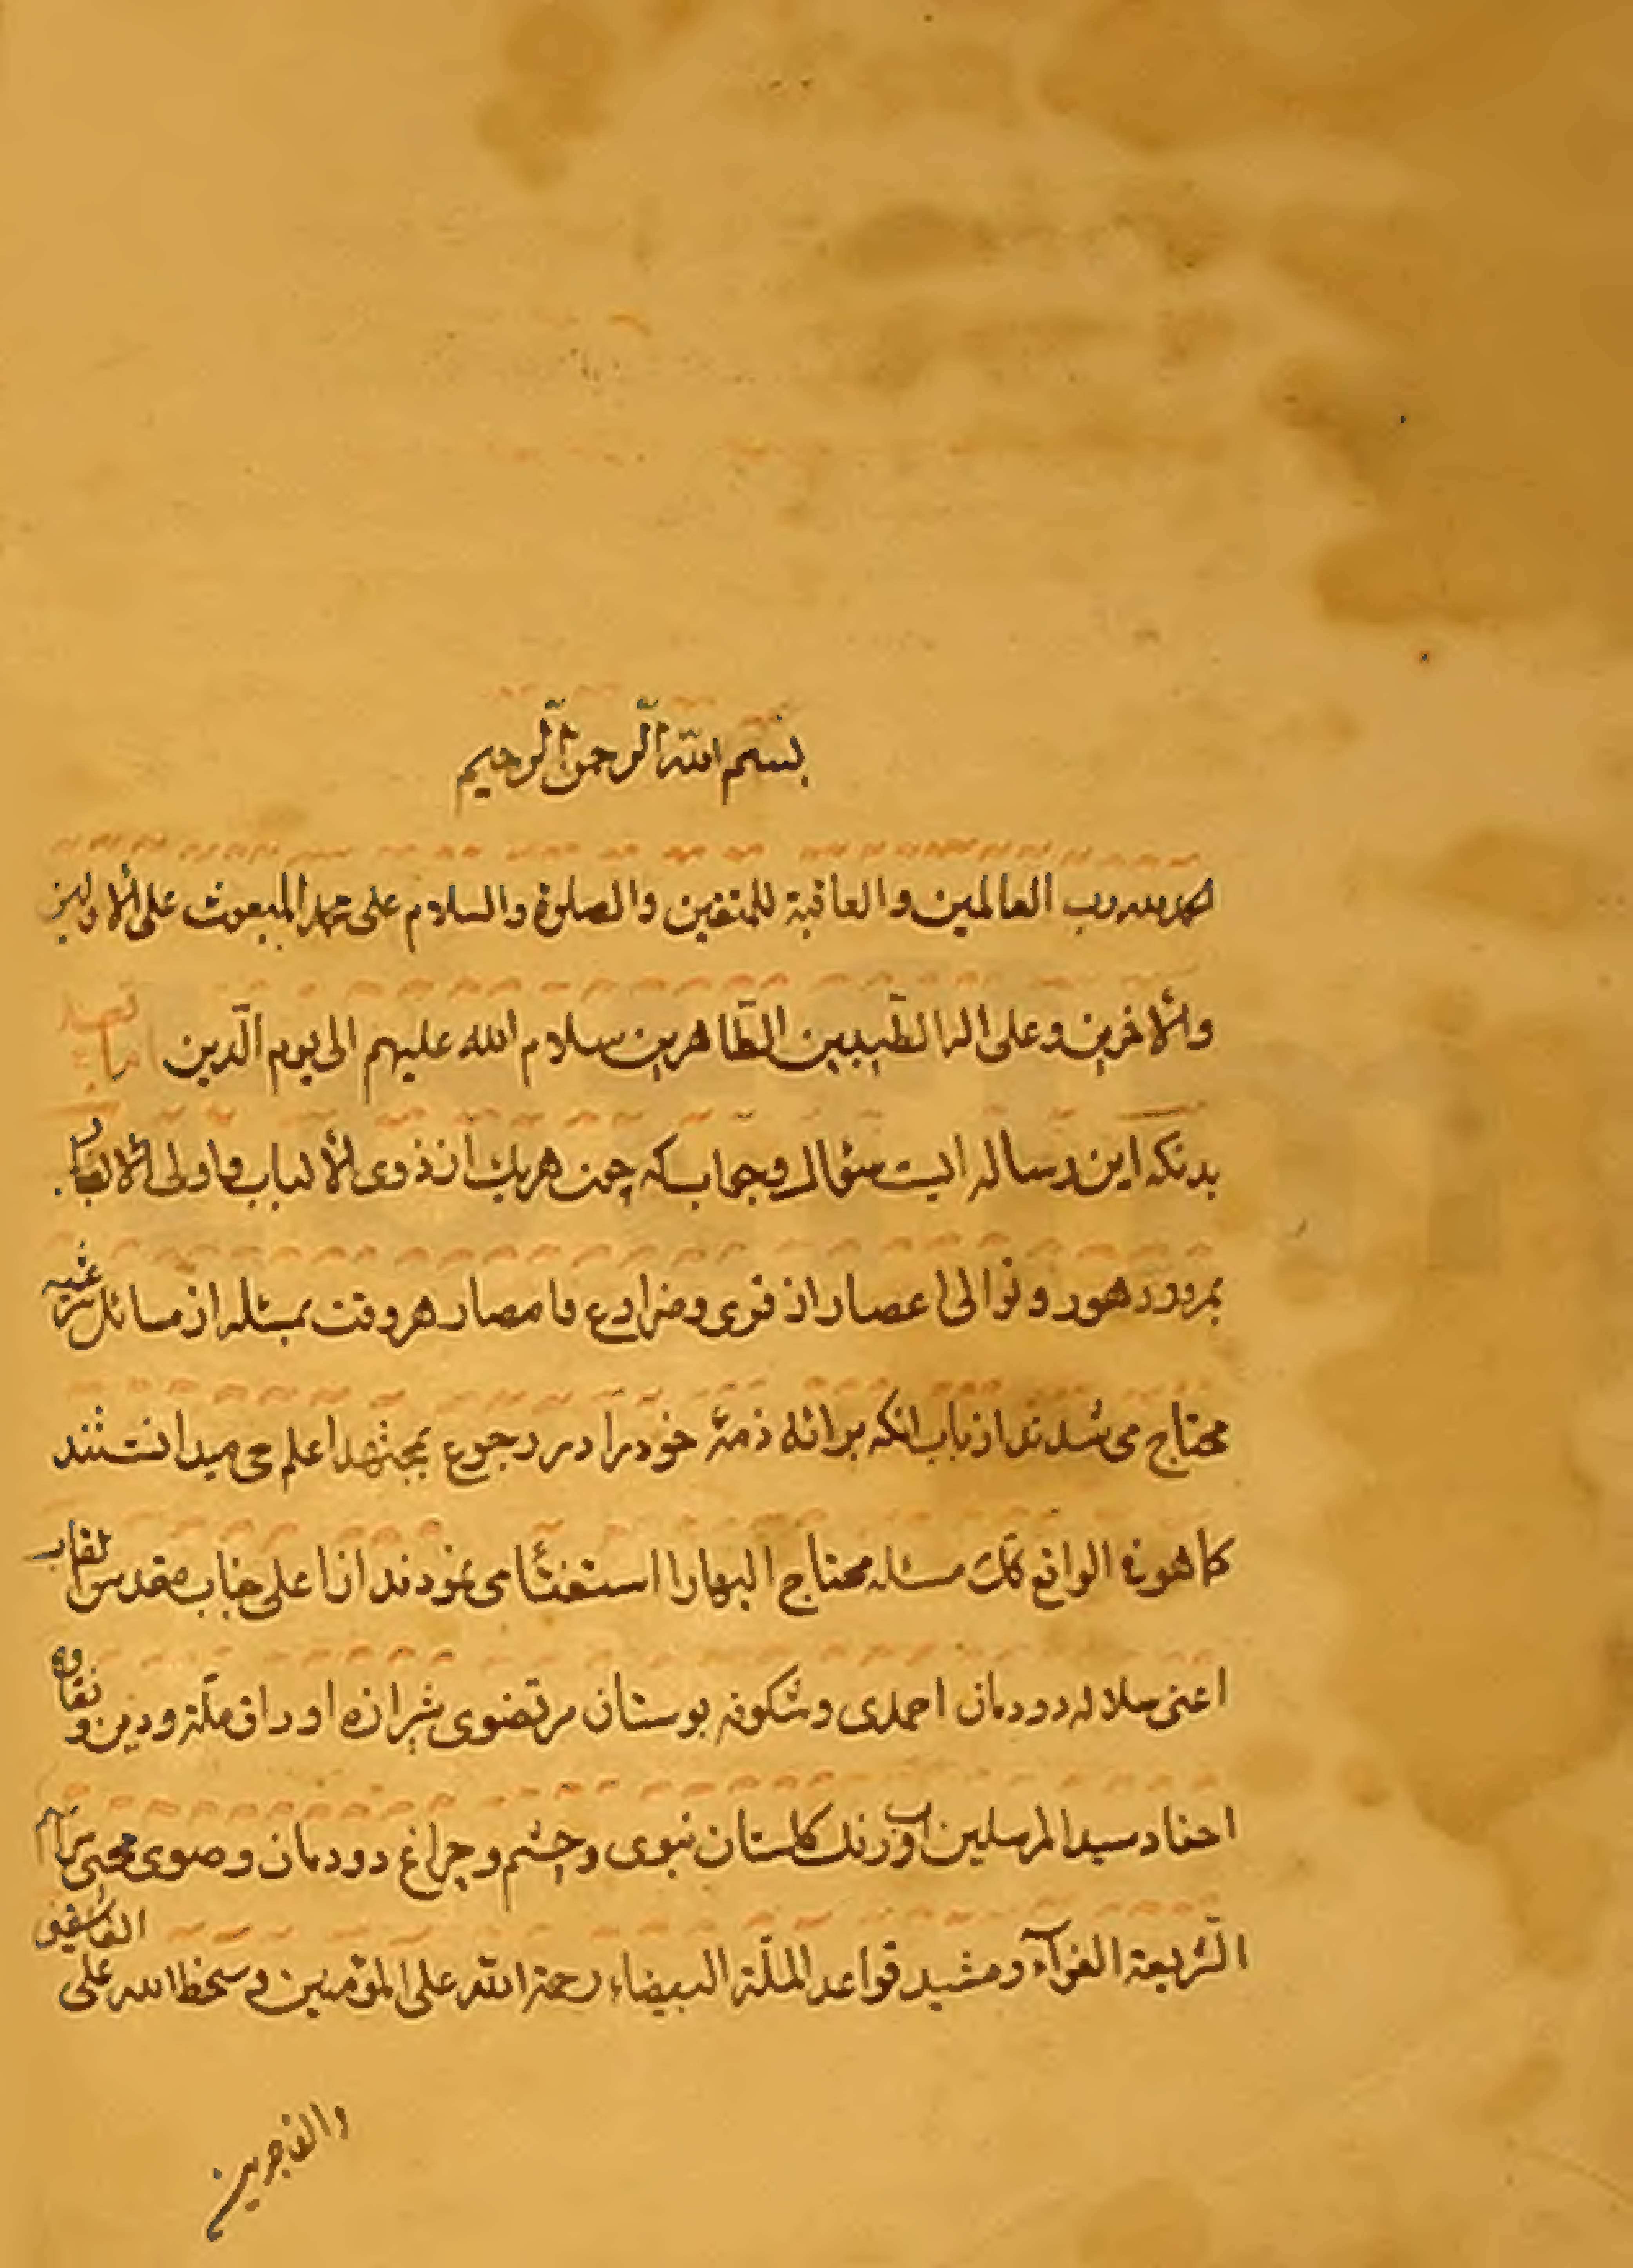 بسم الله الرحمن الرحیم
الحمد لله رب العالمین والعاقبة للمتقین والصلوة والسلام علی محمد المبعوث علی الاولین
والاخرین وعلی اله الطیبین الطاهرین سلام الله علیهم الی یوم الدین اما بعد
بدنکه این رساله ایست سؤال وجواب که چون هریک از ذوی الالباب واولی الابصار
بمرور دهور وتوالی اعصار از قری ومزارع وامصار هر وقت بمسئله از مسائل شرعیه
محتاج می شدند از باب انکه برائة ذمۀ خود را در رجوع بمجتهد اعلم می میدانستند
کما هو فی الواقع تلک مسئله محتاج الیها را استفتا می نمودند از اعلی جناب مقدس القاب
اعنی سلاله دودمان احمدی وشکوفه بوستان مرتضوی شیرازه اوراق ملة ودین ونقاوه
احفاد سید المرسلین اب ورنک کلستان نبوی وچشم وچراغ دودمان وصوی محیی مراسم
الشریعة الغرآء ومشید قواعد الملة البیضاء رحمة الله علی المؤمنین وسخط الله علی الفاسقین
والفاجرین